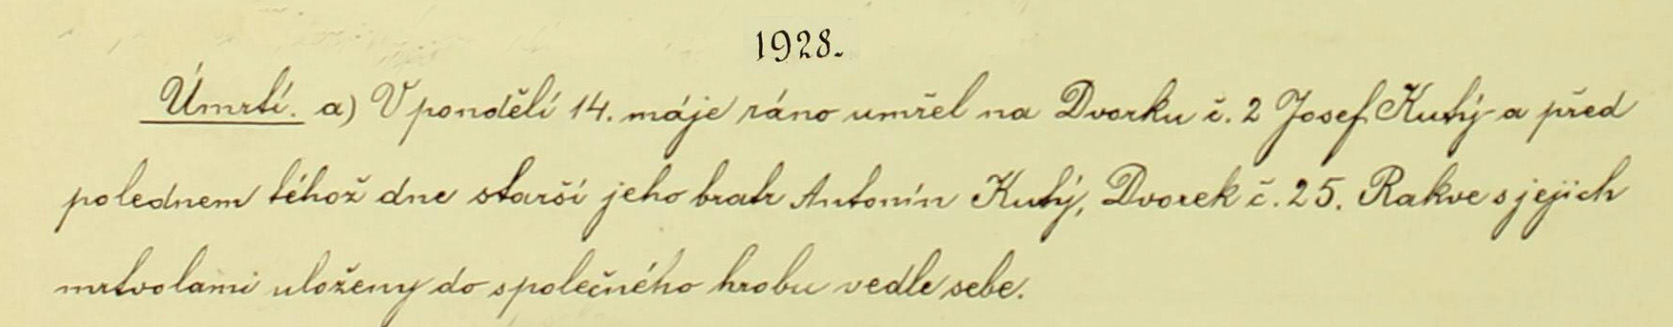 1928.
Úmrtí. a) V pondělí 14. máje ráno umřel na Dvorku č. 2 Josef Kutý a před
polednem téhož dne starší jeho bratr Antonín Kutý, Dvorek č. 25. Rakve s jejich
mrtvolami uloženy do společného hrobu vedle sebe.